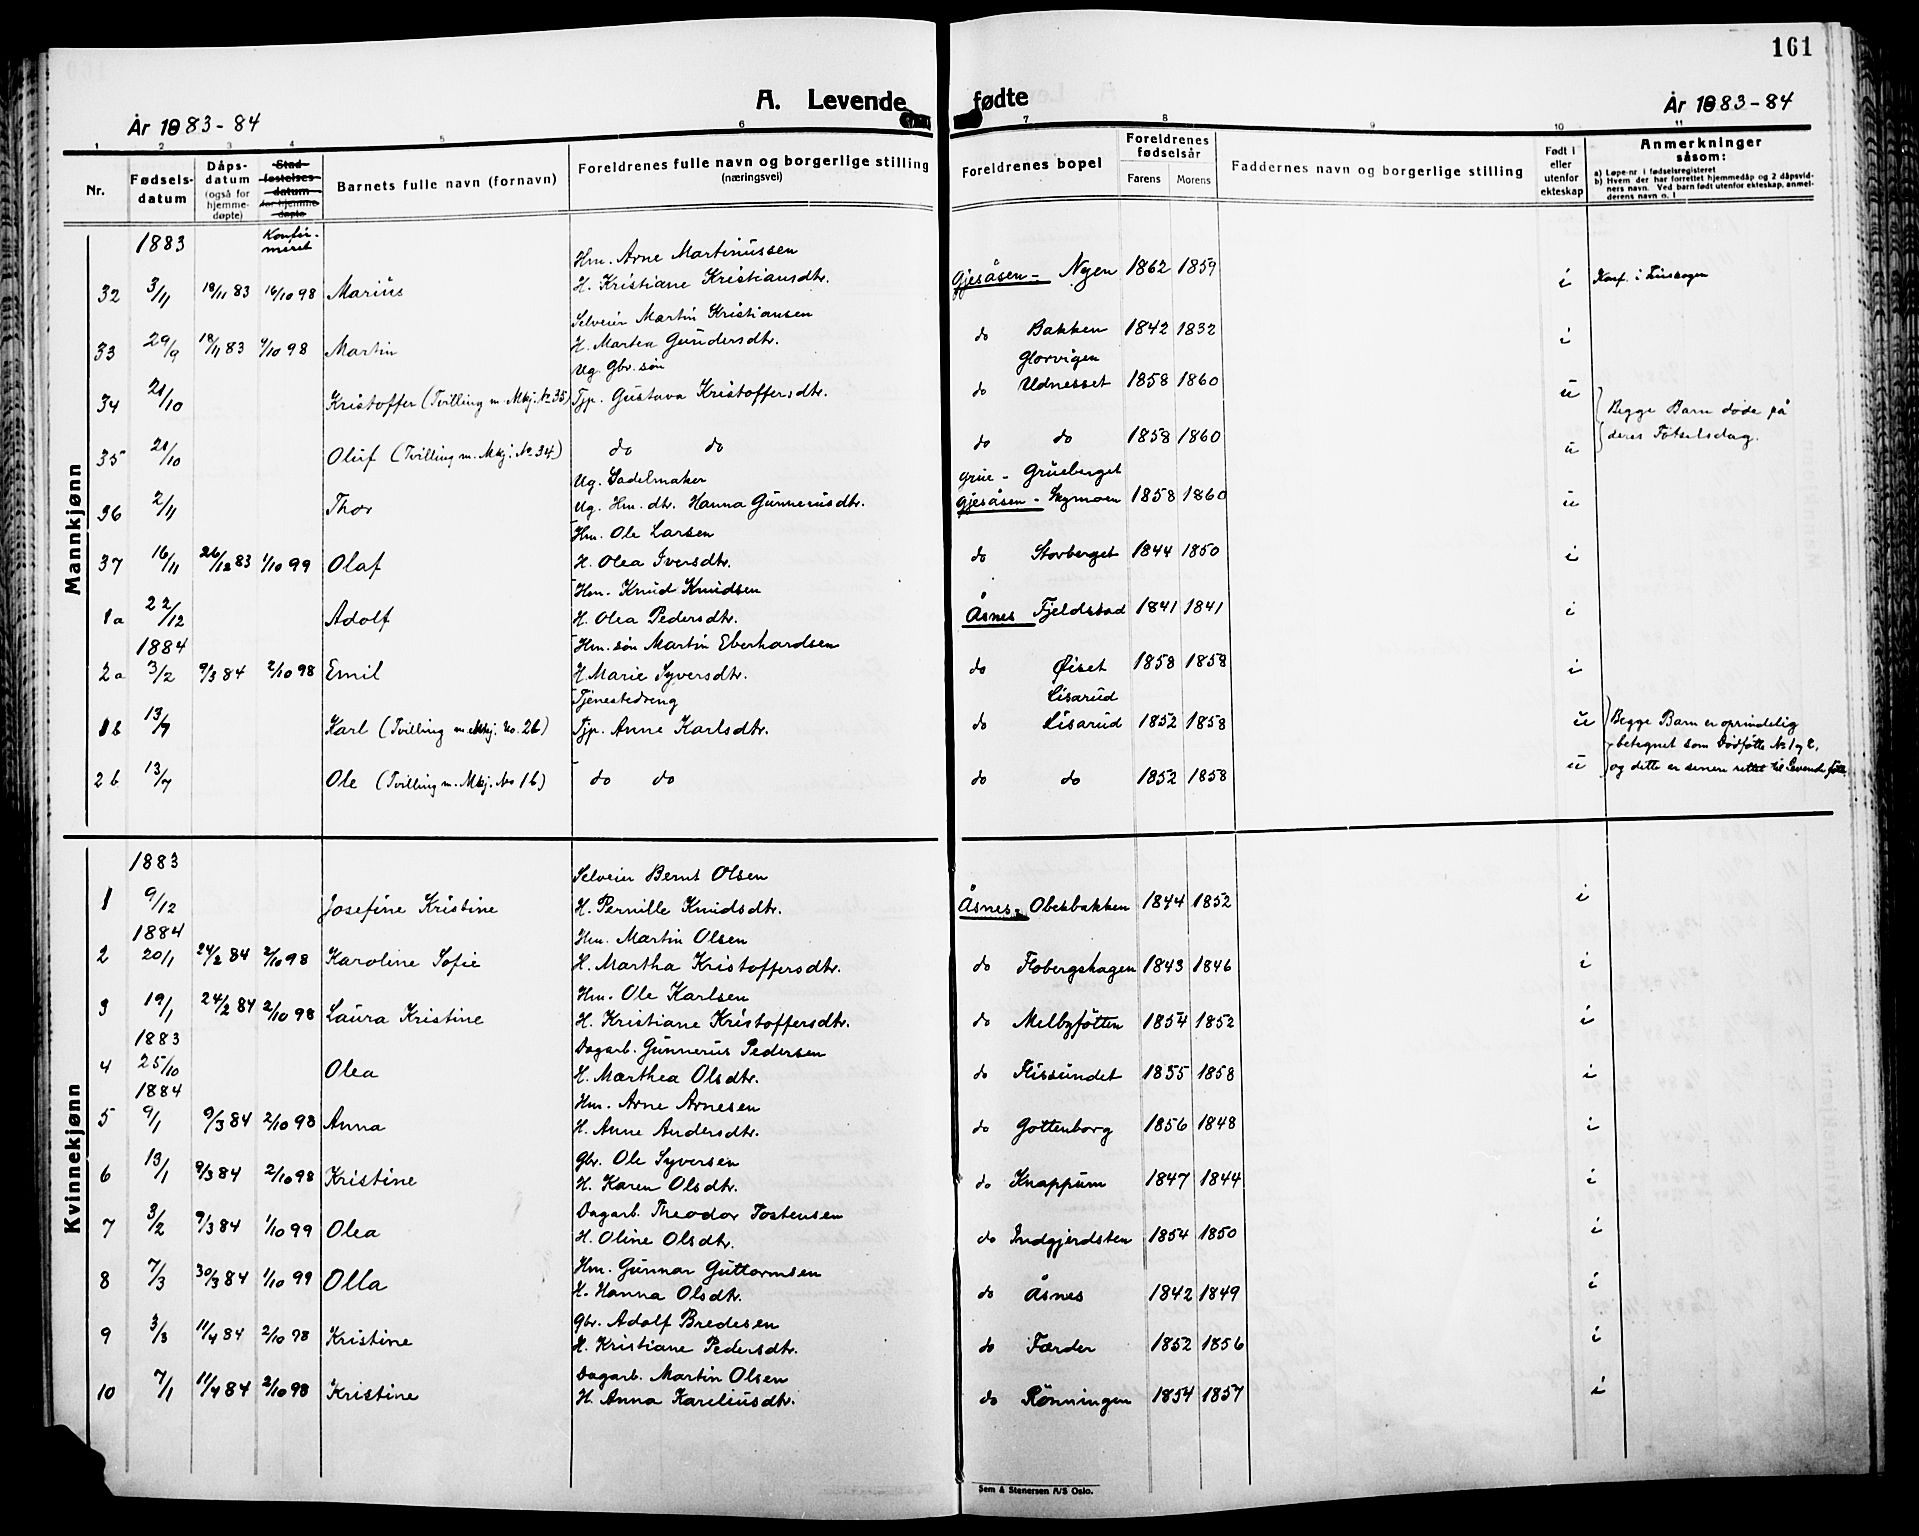 161
A. Levende fødte
År 1883-84
År 1883-84
1 2 3 4 5 6 7 8 9 10 11
Nr. Fødselsdatum Dåpsdatum (også for hjemmedøpte) Stadfestelsesdatum for hjemmedøpte Barnets fulle navn (fornavn) Foreldrenes fulle navn og borgerlige stilling (næringsvei) Foreldrenes bopel Foreldrenes fødselsår Farens Morens Faddernes navn og borgerlige stilling Født i eller utenfor ekteskap Anmerkninger såsom:
a) Løpe-nr i fødselsregisteret
b) Hvem der har forrettet hjemmedåp og 2 dåpsvidners navn. Ved barn født utenfor ekteskap, anmelderens navn o. l
Mannkjønn
1883 Konfirmeret
Hm. Arne Martinussen
32 3/11 18/11 83 16/10 98 Marius H. Kristiane Kristiansdtr. Gjesåsen - Nyen 1862 1859 i Konf. i
Selveier Martin Kristiansen
33 29/9 18/11 83 2/10 98 Martin H. Martea Gundersdtr. do Bakken 1842 1832 i
Ug. Gbr. søn Glorvigen
34 21/10 Kristoffer (Tvilling m. Mkj. No 35) Tjp. Gustava Kristoffersdtr. do Udnesset 1858 1860 u Begge Barn døde på
35 21/10 Oluf (Tvilling m. Mkj. No 34) do do do do 1858 1860 u deres Føtselsdag.
Ug. Sadelmaker Grue - Grueberget
36 2/11 Thor Ug. Hm. dtr. Hanna Gunnerusdtr. Gjesåsen - Lyymoen 1858 1860 u
Hm. Ole Larsen
37 16/11 26/12 83 1/10 99 Olaf H. Olea Iversdtr. do Storberget 1844 1850 i
Hm. Knud Knudsen
1a 22/12 Adolf H. Olea Pedersdtr. Åsnes Fjeldstad 1841 1841 i
1884 Hm. søn Martin Eberhardsen
2a 3/2 9/3 84 2/10 98 Emil H. Marie Syversdtr. do Øiset 1858 1858 i
Tjenestedreng Lisarud
1b 13/7 Karl (Tvilling m. Mkj. No. 2b) Tjp. Anne Karlsdtr. do Lisarud 1852 1858 u Begge Barn er oprindelig
betegnet som Dødføtte No 1 og 2,
2b 13/7 Ole (Tvilling m. Mkj. No 1b) do do do do 1852 1858 u og dette er senere rettet til Levende føtte
Kvinnekjønn
1883 Selveier Bernt Olsen
1 9/12 Josefine Kristine H. Pernille Knudsdtr. Åsnes - Obekbakken 1844 1852 i
1884 Hm. Martin Olsen
2 20/1 24/2 84 2/10 98 Karoline Sofie H. Martha Kristoffersdtr. do Flobergshagen 1843 1846 i
Hm. Ole Karlsen
3 19/1 24/2 84 2/10 98 Laura Kristine H. Kristiane Kristoffersdtr. do Melbyføtten 1854 1852 i
1883 Dagarb. Gunnerus Pedersen
4 25/10 Olea H. Marthea Olsdtr. do Flissundet 1855 1858 i
1884 Hm. Arne Arnesen
5 9/1 9/3 84 2/10 98 Anna H. Anne Andersdtr. do Gottenborg 1856 1848 i
Gbr. Ole Syversen
6 13/1 9/3 84 2/10 98 Kristine H. Karen Olsdtr. do Knappum 1847 1844 i
Dagarb. Theodor Tostensen
7 3/2 9/3 84 1/10 99 Olea H. Oline Olsdtr. do Indgjerdsten 1854 1850 i
Hm. Gunnar Guttormsen
8 7/3 30/3 84 1/10 99 Olla H. Hanna Olsdtr. do Åsnes 1842 1849 i
Gbr. Adolf Bredesen
9 3/3 11/4 84 2/10 98 Kristine H. Kristiane Pedersdtr. do Færder 1852 1856 i
Dagarb. Martin Olsen
10 7/1 11/4 84 2/10 98 Kristine H. Anna Kareliusdtr. do Rønningen 1854 1857 i
Sem & Stenersen A/S Oslo.